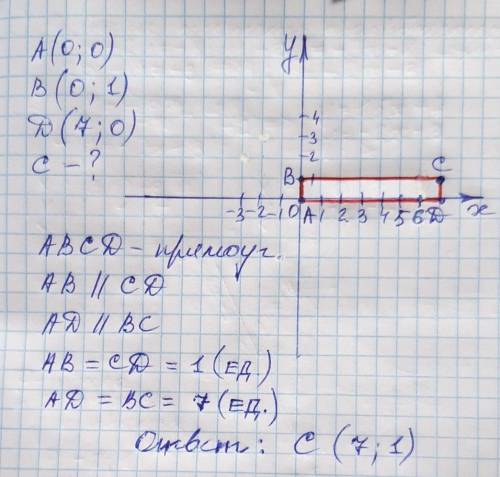 A(0; 0)
B(0; 1)
D(7; 0)
C – ?
y
4
3
2
B 1 C
-3 -2 -1 0 A 1 2 3 4 5 6 D x
ABCD – прямоуг.
AB || CD
AD || BC
AB = CD = 1 (ед.)
AD = BC = 7 (ед.)
Ответ: C (7; 1)